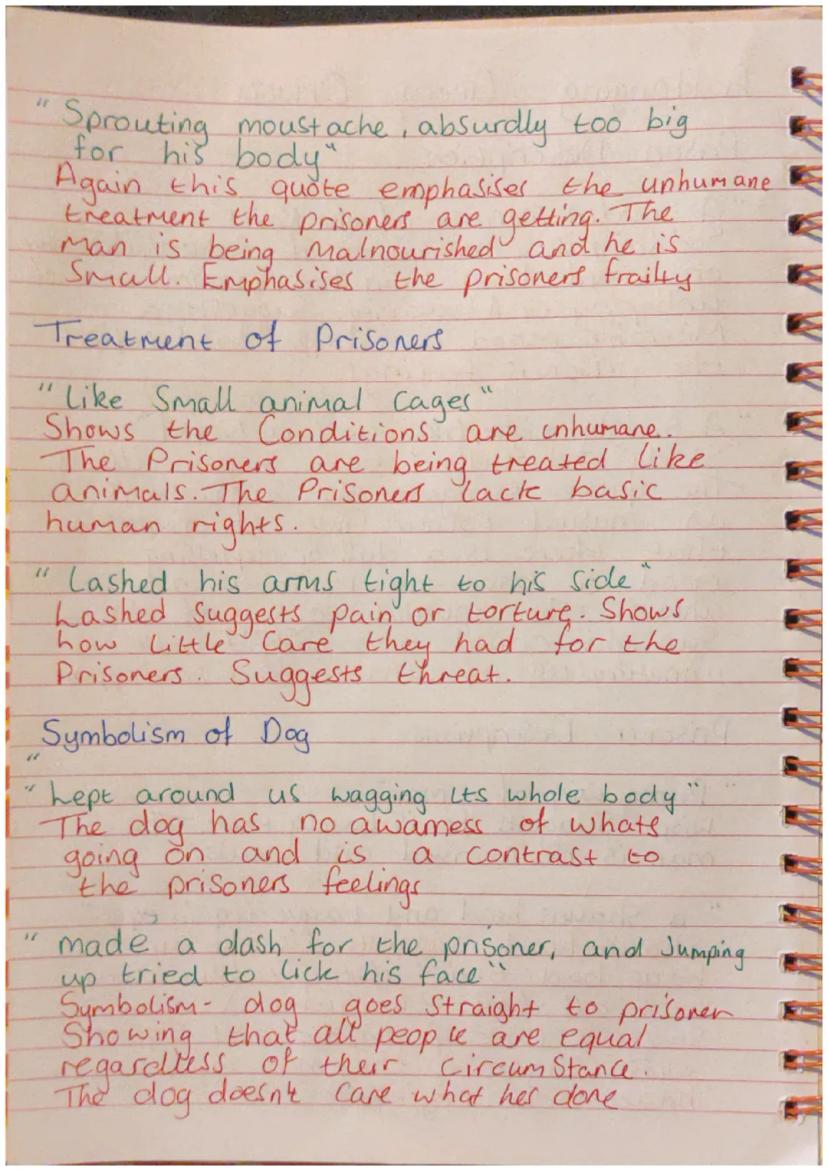 "Sprouting moustache, absurdly too big
for his body"
Again this quote emphasises the unhumane
treatment the prisoners are getting. The
man is being malnourished and he is
Small. Emphasises the prisoners frailty
Treatment of Prisoners
"Like Small animal cages"
Shows the Conditions are unhumane.
The Prisoners are being treated like
animals. The Prisoners lack basic
human rights.
"Lashed his arms tight to his side"
Lashed suggests pain or torture. Shows
how little care they had for the
Prisoners. Suggests threat.
Symbolism of Dog
"
"Lept around us wagging its whole body"
The dog has no awarness of whats
going on and is a contrast to
the prisoners feelings
"made a dash for the prisoner, and Jumping
up tried to lick his face"
Symbolism- dog goes straight to prisoner
Showing that all people are equal
regardless of their circumstance.
The dog doesn't care what hes done